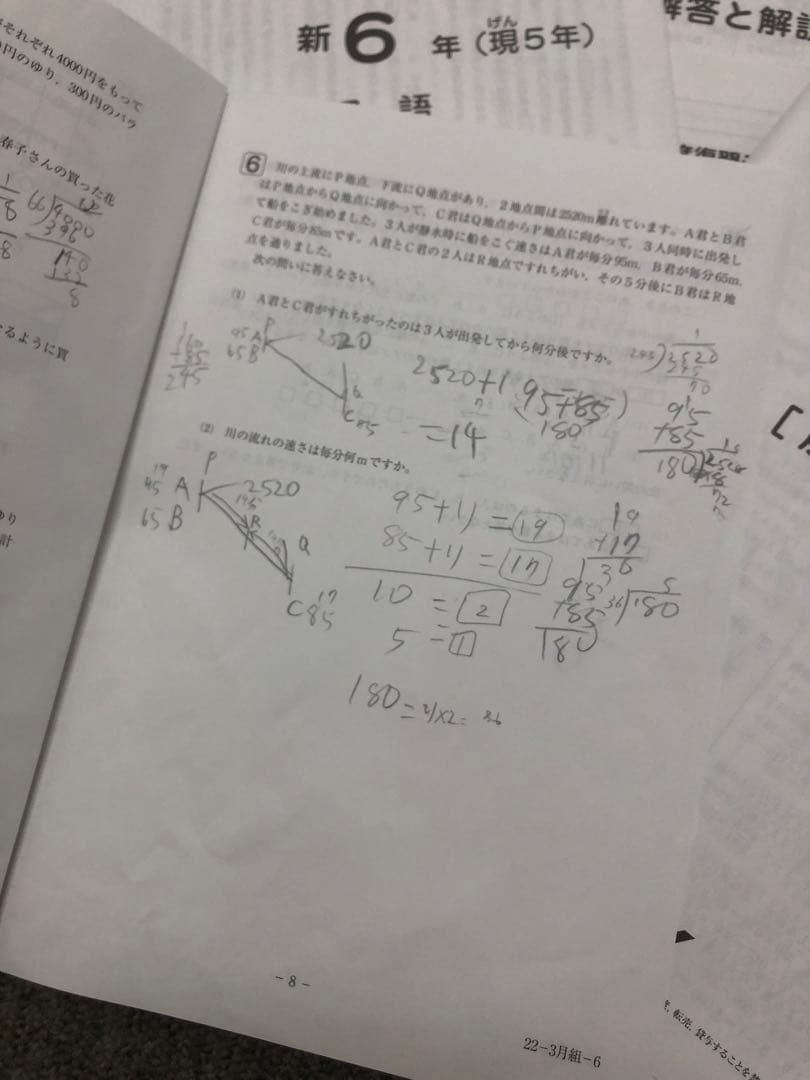 新6年(現5年)
げん
語
解答と解説
それぞれ4000円をもって
円のゆり，300円のバラ
春子さんの買った花
るように買
ゆり
計
66)4000
396
140
132
8
6 川の上流にP地点，下流にQ地点があり，2地点間は2520m離れています。A君とB君
はP地点からQ地点に向かって，C君はQ地点からP地点に向かって，3人同時に出発し
て船をこぎ始めました。3人が静水時に船をこぐ速さはA君が毎分95m，B君が毎分65m，
C君が毎分85mです。A君とC君の2人はR地点ですれちがい，その5分後にB君はR地
点を通りました。
次の問いに答えなさい。
(1) A君とC君がすれちがったのは3人が出発してから何分後ですか。
P
95A
65B
2520
C85
160
+85
245
2520÷(95+85)
180
=14
245)2520
245
70
95
+85
180
(2) 川の流れの速さは毎分何mですか。
P
19
95 A
2520
65B
R
Q
17
C85
95+1)=19
85+1)=17
10=2
5=1
19
+17
36
95
+85
180
5
36)180
180=
-8-
22-3月組-6
，転売，貸与することを